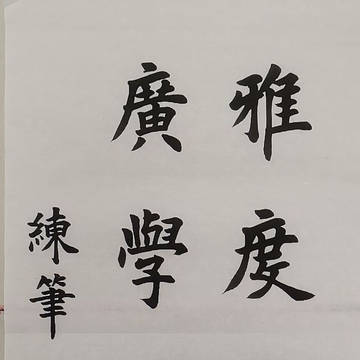 雅度
廣學
練筆